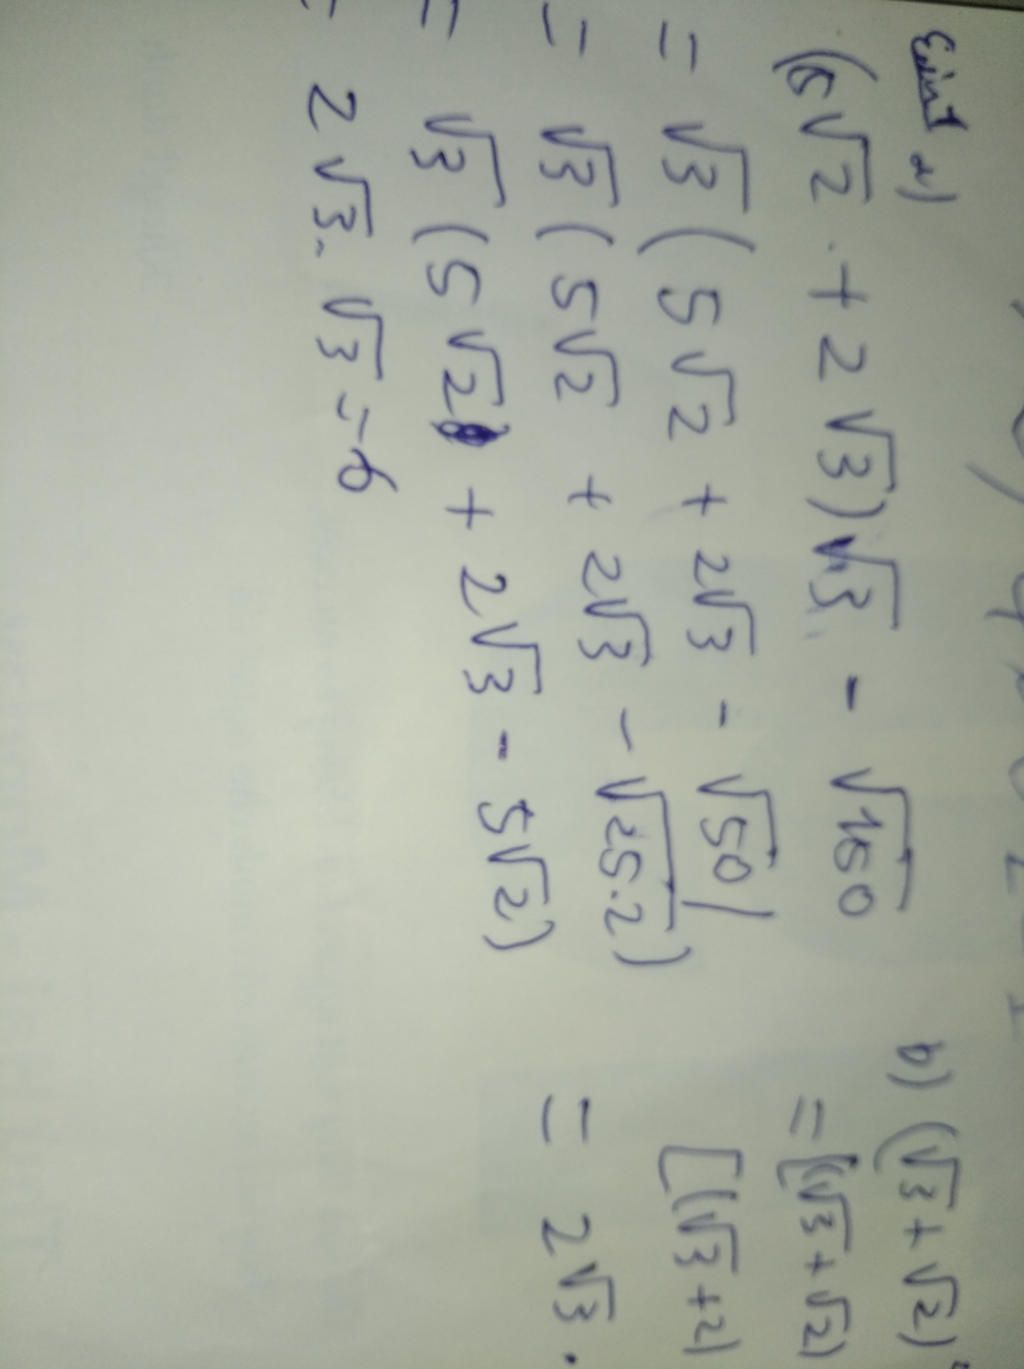 a)
(5√2 + 2√3)√3 - √150
= √3 (5√2 + 2√3 - √50)
= √3 (5√2 + 2√3 - √25.2)
= √3 (5√2 + 2√3 - 5√2)
= 2√3.√3 = 6
b) (√3+√2)²
= [(√3+√2)
[(√3+2)
= 2√3.